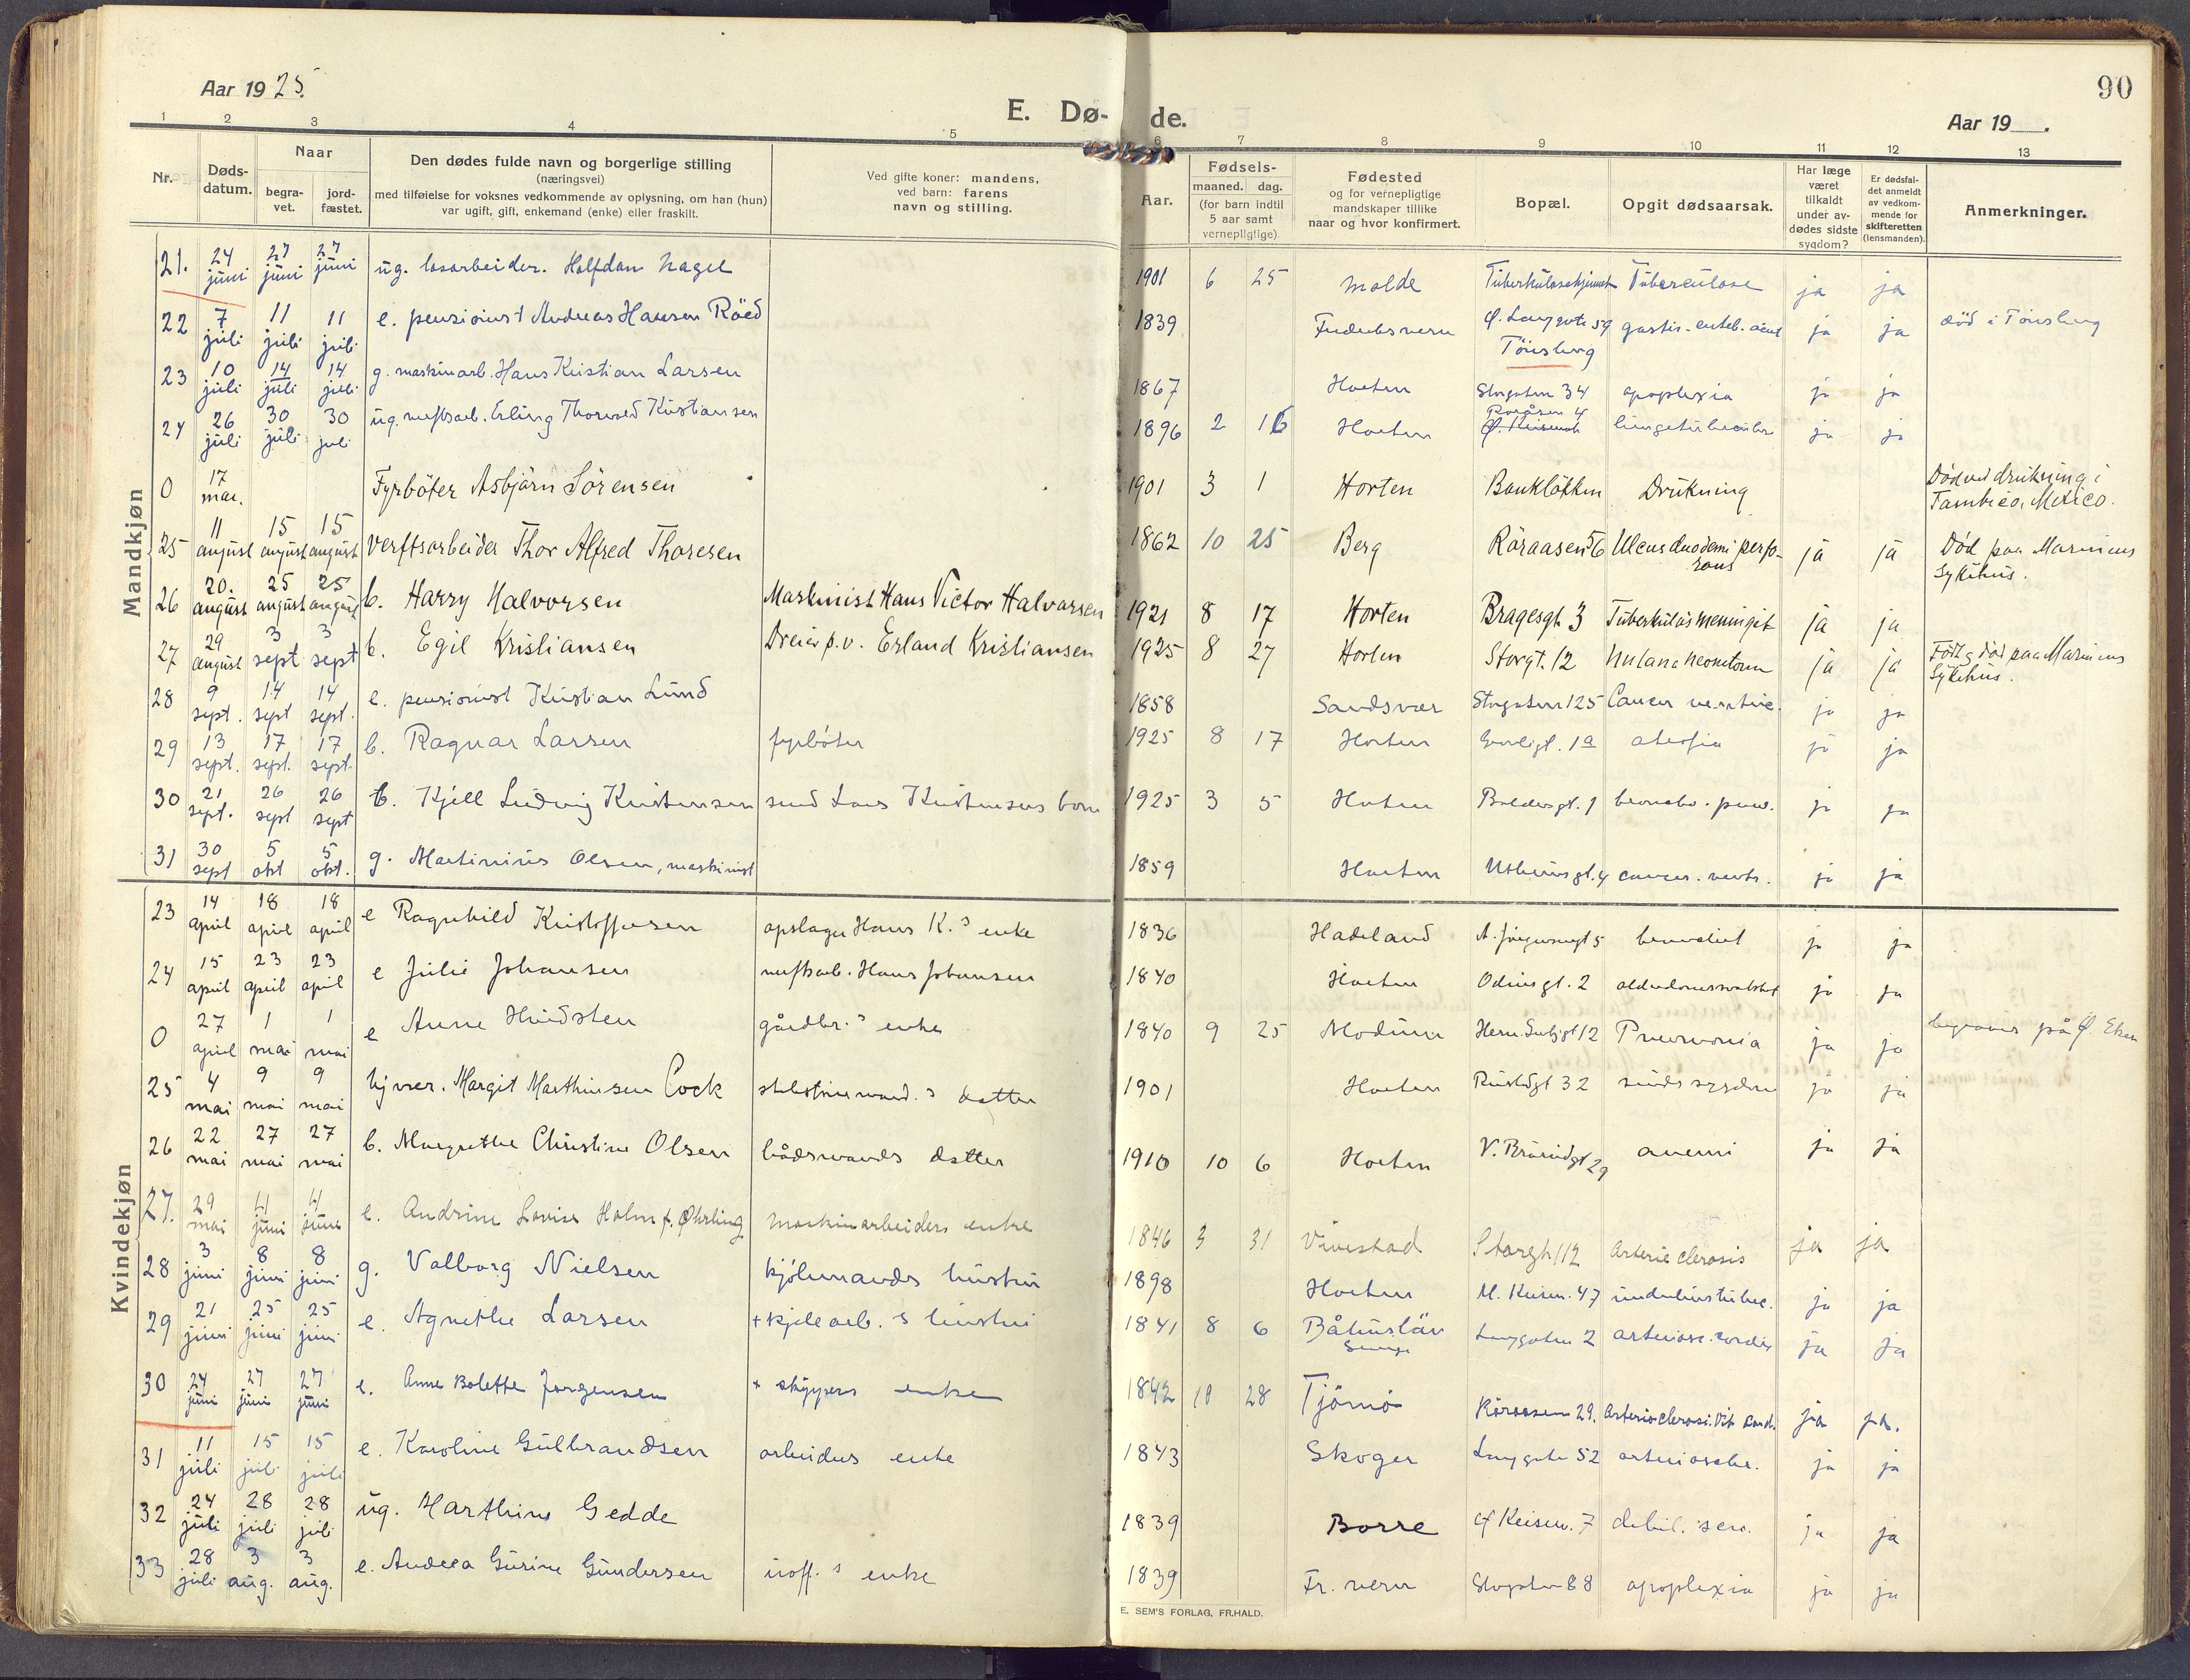 Aar 1925.
E. Dø-
de.
90
Aar 19 .
1 2 3 4 5 6 7 8 9 10 11 12 13
Nr.
Døds-
datum.
Naar
begra-
vet.
jord-
fæstet.
Den dødes fulde navn og borgerlige stilling
(næringsvei)
med tilføielse for voksnes vedkommende av oplysning, om han (hun)
var ugift, gift, enkemand (enke) eller fraskilt.
Ved gifte koner: mandens,
ved barn: farens
navn og stilling.
Aar.
Fødsels-
maaned. dag.
(for barn indtil
5 aar samt
vernepligtige)
Fødested
og for vernepligtige
mandskaper tillike
naar og hvor konfirmert.
Bopæl.
Opgit dødsaarsak.
Har læge
været
tilkaldt
under av-
dødes sidste
sygdom?
Er dødsfal-
det anmeldt
av vedkom-
mende for
skifteretten
(lensmanden).
Anmerkninger.
Mandkjøn
21. 24 juni 27 juni 27 juni ug. løsarbeider. Halfdan Nagel 1901 6 25 Molde Tuberkulosehjemmet Tuberculose ja ja
22 7 juli 11 juli 11 juli e. pensionist Andreas Hansen Röed 1839 Frederiksvern Ø. Langgate 59 Tönsberg ja ja død i Tönsberg
23 10 juli 14 juli 14 juli g. maskinarb. Hans Kristian Larsen 1867 Horten Storgaten 34 apoplexia ja ja
24 26 juli 30 juli 30 juli ug. verftsarb. Erling Thorvald Kristiansen 1896 2 16 Horten Röråsen 4 lungetuberculos ja ja
0 17 mar. Fyrbøter Asbjørn Sörensen 1901 3 1 Horten Bankløkken Drukning Död ved drukning i
Tambico, Mexico.
25 11 august 15 august 15 august Verftsarbeider Thor Alfred Thoresen 1862 10 25 Berg Röraasen 56 Ulcus duodeni perfo-
rans ja ja Död paa Marinens
Sykehus.
26 20. august 25 august 25 august b. Harry Halvorsen Maskinist Hans Victor Halvorsen 1921 8 17 Horten Bragesgt. 3 Tuberkuløs meningit ja ja
27 29 august 3 sept 3 sept b. Egil Kristiansen Dreier p.v. Erland Kristiansen 1925 8 27 Horten Storgt. 12 ja ja Född og död paa Marinens
Sykehus.
28 9 sept. 14 sept 14 sept. e. pensionist Kristian Lund 1858 Sandsvær Storgaten 125 Cancer ventric. ja ja
29 13 sept. 17 sept. 17 sept. b. Ragnar Larsen fyrbøter 1925 8 17 Horten 1a atrofia ja ja
30 21 sept. 26 sept 26 sept b. Kjell Ludvig Kristensen smed Lars Kristensens barn 1925 3 5 Horten Baldersgt. 1 broncho. pneu. ja ja
31 30 sept 5 okt 5 okt. g. Martinius Olsen, maskinist 1859 Horten 4 cancer. ventr. ja ja
Kvindekjøn
23 14 april 18 april 18 april e Ragnhild Kristoffersen opslager Hans K.s enke 1836 Hadeland A. Jörgensensgt 5 ja ja
24 15 april 23 april 23 april e Julie Johansen verftsarb. Hans Johansen 1840 Horten Odinsgt. 2 alderdomssvakhet ja ja
0 27 april 1 mai 1 mai e Anne Hvidsten gårdbr.s enke 1840 9 25 Modum Herm. 12 Pneumonia ja ja begraves på Ø. Eker
25 4 mai 9 mai 9 mai hjvær. Margit Marthinsen Cock datter 1901 Horten 32 ja ja
26 22 mai 27 mai 27 mai b. Margrethe Christine Olsen bådsmands datter 1910 10 6 Horten V. Brårudgt 29 anemi ja ja
27. 29 mai 4 juni 4 juni e. Andrine Lovise Holm f. Øhrling maskinarbeiders enke 1846 3 31 Vivestad Storgt. 112 Arteriesclerosis ja ja
28 3 juni 8 juni 8 juni g. Valborg Nielsen hustru 1898 Horten M. Keiserv. 47 ja ja
29 21 juni 25 juni 25 juni e. Agnethe Larsen + kjelearb.s hustru 1841 8 6 Båhuslän Langgaten 2 ja ja
30 24 juni 27 juni 27 juni e. Anne Bolette Jorgensen + skippers enke 1842 10 28 Tjömö Röraasen 29. ja ja.
31 11 juli 15 juli 15 juli e. Karoline Gulbrandsen arbeiders enke 1843 Skoger Langgate 52 arteriosclr. ja ja
32 24 juli 28 juli 28 juli ug. Marthine Gedde 1839 Borre Keiserv. 7 debil. sen. ja ja
33 28 juli 3 aug. 3 aug. e. Andrea Gurine Gundersen uoff.s enke 1839 Fr. vern Storgaten 88 apoplexia ja ja
E. SEM'S FORLAG, FR.HALD.